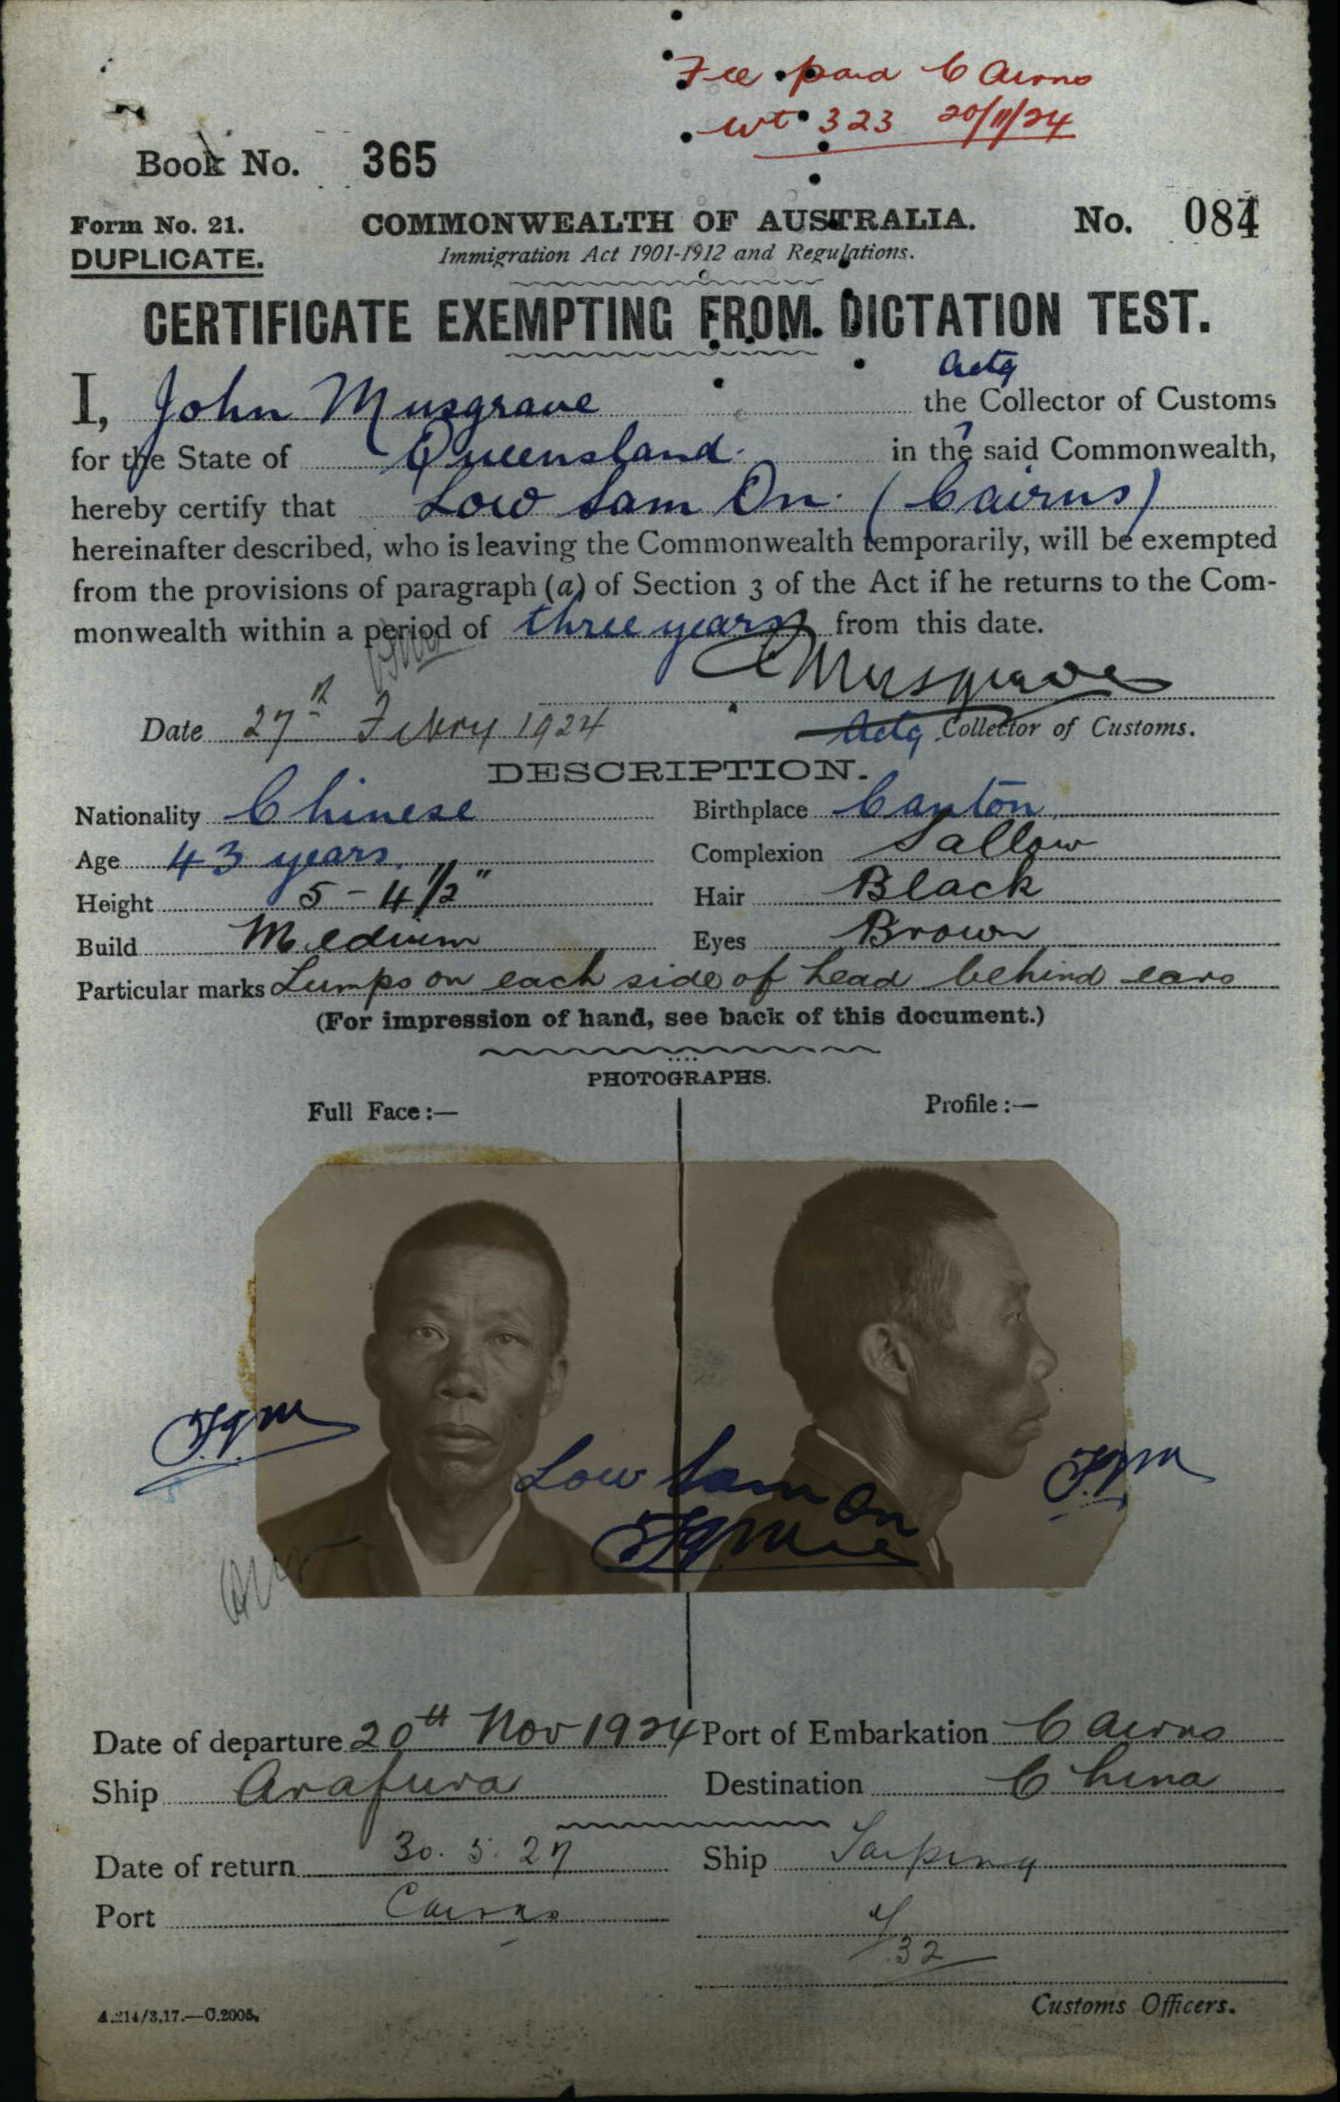 Fee paid Cairns
323 20/11/24
Book No. 365
Form No. 21. COMMONWEALTH OF AUSTRALIA. No. 084
DUPLICATE. Immigration Act 1901-1912 and Regulations.
CERTIFICATE EXEMPTING FROM DICTATION TEST.
Actg
I, John Musgrave the Collector of Customs
for the State of Queensland. in the said Commonwealth,
hereby certify that Low Sam On. (Cairns)
hereinafter described, who is leaving the Commonwealth temporarily, will be exempted
from the provisions of paragraph (a) of Section 3 of the Act if he returns to the Com-
monwealth within a period of three years from this date.
Musgrave
Date 27th Febry 1924 Actg Collector of Customs.
DESCRIPTION.
Nationality Chinese Birthplace Canton
Age 43 years. Complexion Sallow
Height 5-4 1/2" Hair Black
Build Medium Eyes Brown
Particular marks Lumps on each side of head behind ears
(For impression of hand, see back of this document.)
PHOTOGRAPHS.
Full Face:— Profile:—
Low Sam On
Date of departure 20th Nov 1924 Port of Embarkation Cairns
Ship Arafura Destination China
Date of return 30.5.27 Ship Taiping
Port Cairns
32
Customs Officers.
A.214/3.17.—C.2005.